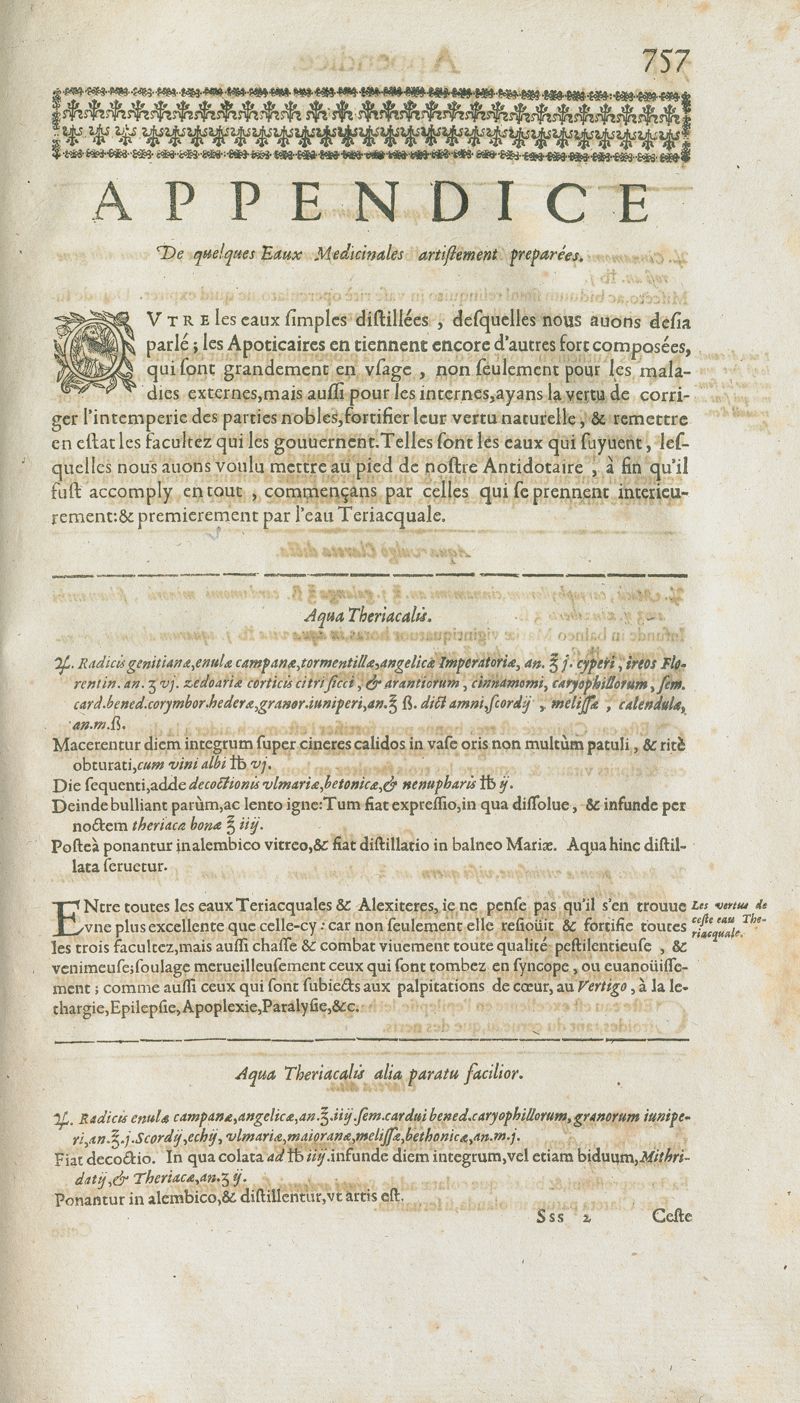 757
APPENDICE
De quelques Eaux Medicinales artiſtement preparées.
OVTRE les eaux ſimples diſtillées , deſquelles nous auons deſia
parlé ; les Apoticaires en tiennent encore d'autres fort composées,
qui ſont grandement en vſage , non ſeulement pour les mala-
dies externes,mais auſſi pour les internes,ayans la vertu de corri-
ger l'intemperie des parties nobles,fortifier leur vertu naturelle, & remettre
en eſtat les facultez qui les gouuernent.Telles ſont les eaux qui ſuyuent, leſ-
quelles nous auons voulu mettre au pied de noſtre Antidotaire , à fin qu'il
fuſt accomply en tout , commençans par celles qui ſe prennent interieu-
rement:& premierement par l'eau Teriacquale.
Aqua Theriacalis.
℞. Radicis genitianæ,enulæ campanæ,tormentillæ,angelicæ Imperatoriæ, an. ℥ j. cyperi, ireos Flo-
rentin. an. ʒ vj. zedoariæ corticis citri ſicci, & arantiorum, cinnamomi, caryophillorum, ſem.
card.bened.corymbor.hederæ,granor.iuniperi,an.℥ ß. dictamni,ſcordij , meliſſæ , calendulæ,
an.m.ß.
Macerentur diem integrum ſuper cineres calidos in vaſe oris non multùm patuli, & ritè
obturati,cum vini albi ℔ vj.
Die ſequenti,adde decoctionis vlmariæ,betonicæ,& nenupharis ℔ ij.
Deinde bulliant parùm,ac lento igne:Tum fiat expreſſio,in qua diſſolue, & infunde per
noctem theriacæ bonæ ℥ iij.
Poſteà ponantur in alembico vitreo,& fiat diſtillatio in balneo Mariæ. Aqua hinc diſtil-
lata ſeruetur.
ENtre toutes les eaux Teriacquales & Alexiteres, ie ne penſe pas qu'il s'en trouue
vne plus excellente que celle-cy : car non ſeulement elle reſioüit & fortifie toutes
les trois facultez,mais auſſi chaſſe & combat viuement toute qualité peſtilentieuſe , &
venimeuſe;ſoulage merueilleuſement ceux qui ſont tombez en ſyncope, ou euanoüiſſe-
ment ; comme auſſi ceux qui ſont ſubiects aux palpitations de cœur, au Vertigo, à la le-
thargie,Epilepſie,Apoplexie,Paralyſie,&c.
Les vertus de
ceſte eau The-
riacquale.
Aqua Theriacalis alia paratu facilior.
℞. Radicis enulæ campanæ,angelicæ,an.℥.iij.ſem.cardui bened.caryophillorum,granorum iunipe-
ri,an.℥.j.Scordij,echij, vlmariæ,maioranæ,meliſſæ,bethonicæ,an.m.j.
Fiat decoctio. In qua colata ad ℔ iij.infunde diem integrum,vel etiam biduum,Mithri-
datij,& Theriacæ,an.ʒ ij.
Ponantur in alembico,& diſtillentur,vt artis eſt.
Sss 2 Ceſte